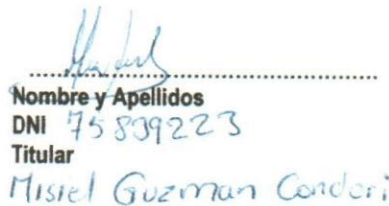 Nombre y Apellidos
DNI 75839223
Titular
Misiel Guzman Condori